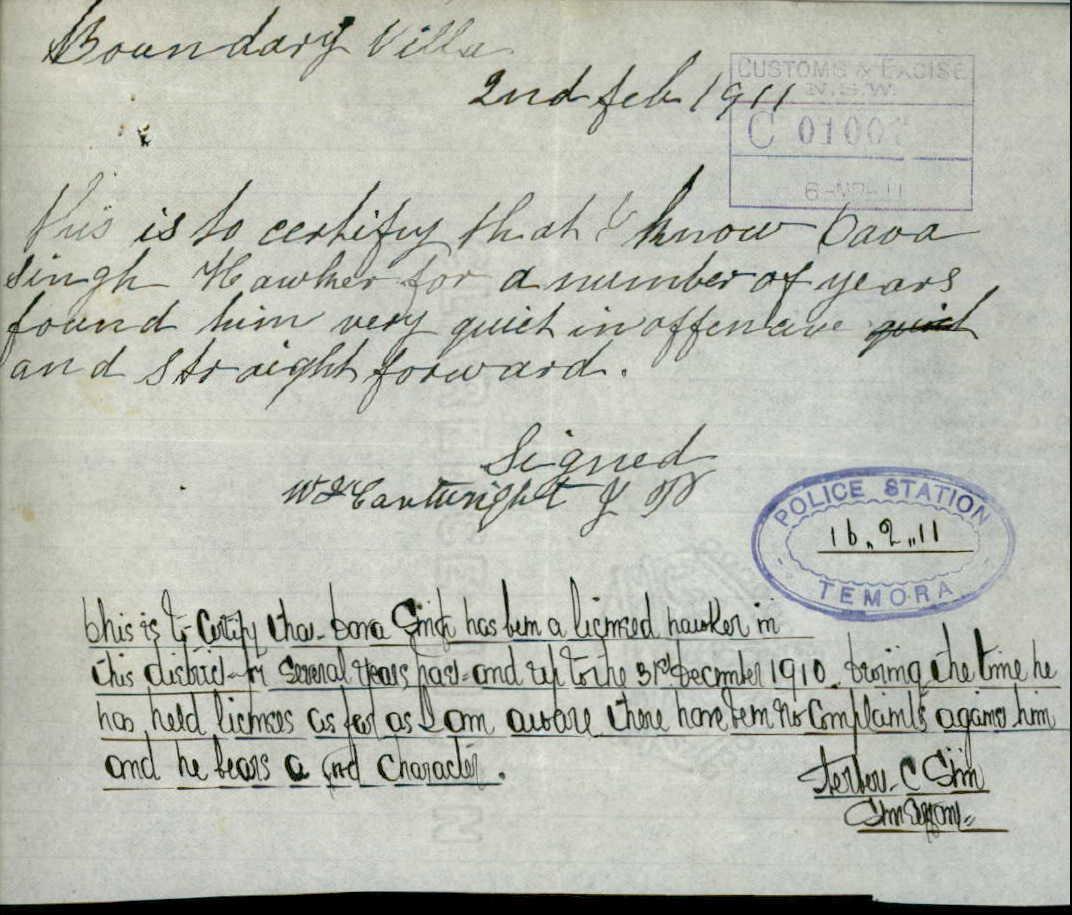 Boundary Villa
2nd feb 1911
CUSTOMS & EXCISE
N.S.W.
C 01007
this is to certify that I know Dava
singh Hawker for a number of years
found him very quiet in offensive quiet
and straight forward.
Signed
Cartwright J P
POLICE STATION
16.2.11
TEMORA
This is to Certify that Dava Singh has been a licensed hawker in
this district for Several years past and up to the 31st December 1910. During the time he
has held licenses as far as I am aware there have been no Complaints against him
and he bears a good Character.
C